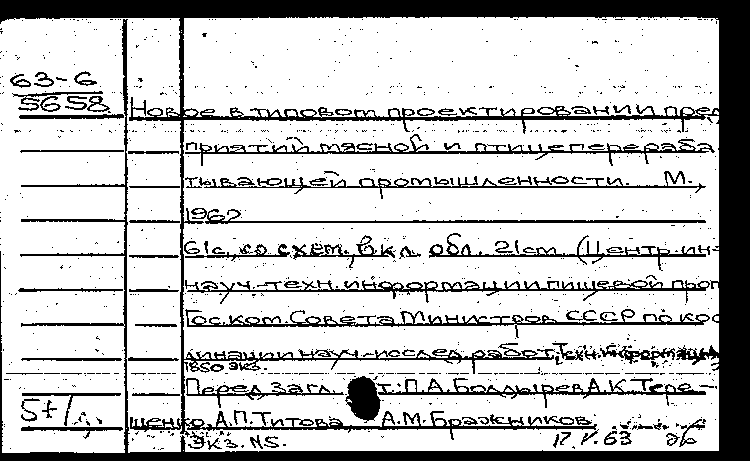 63-6
5658
Новое в типовом проектировании пред
приятий мясной и птицеперераба
тывающей промышленности. М.,
1962
61с, со схем., вкл. обл. 21см. (Центр. ин-
науч.-техн. информации пищевой пром
Гос. ком. Совета Министров СССР по коо
динации науч.-исслед. работ. Техн. информация
1850 экз.
Перед загл. т.: П.А. Болдырев, А.К. Тере-
щенко, А.П. Титова, А.М. Бражников.
Экз. NS.
17.V.63